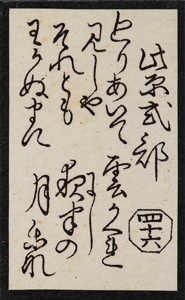 紫式部
四十六
めくりあいて
見しや
それとも
わかぬまに
雲かくれ
にし
夜半の
月かな